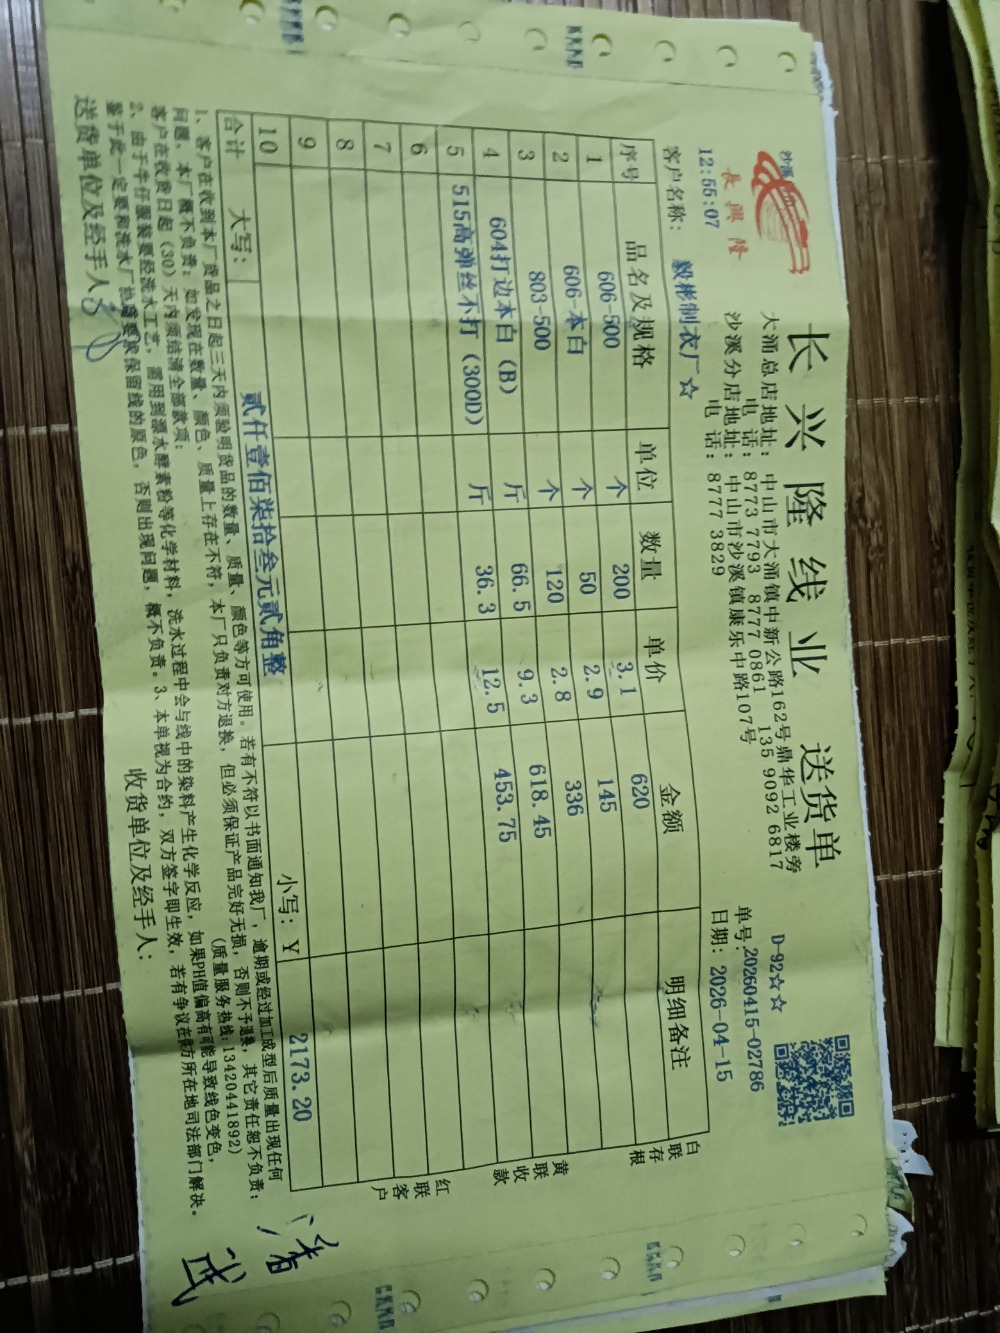 沙溪
长兴隆
长兴隆线业 送货单
大涌总店地址：中山市大涌镇中新公路162号鼎华工业楼旁
电话：8773 7793 8777 0861 135 9092 6817
沙溪分店地址：中山市沙溪镇康乐中路107号
电话：8777 3829
D-92☆☆
单号:20260415-02786
日期：2026-04-15
12:55:07
客户名称： 毅彬制衣厂☆
序号 品名及规格 单位 数量 单价 金额 明细备注
1 606-500 个 200 3.1 620
2 606-本白 个 50 2.9 145
3 803-500 个 120 2.8 336
4 604打边本白（B） 斤 66.5 9.3 618.45
5 515高弹丝不打（300D） 斤 36.3 12.5 453.75
6
7
8
9
10
合计 大写： 贰仟壹佰柒拾叁元贰角整 小写：Y 2173.20
白联存根
黄联收款
红联客户
1、客户在收到本厂货品之日起三天内须验明货品的数量、质量、颜色等方可使用。若有不符以书面通知我厂，逾期或经过加工成型后质量出现任何
问题，本厂概不负责；如发现在数量、颜色、质量上存在不符，本厂只负责对方退换，但必须保证产品完好无损，否则不予退换，其它责任恕不负责；
客户在收货日起（30）天内须结清全部款项； （质量服务热线：13420441892）
2、由于牛仔服装要经洗水工艺，需用到漂水酵素粉等化学材料，洗水过程中会与线中的染料产生化学反应，如果PH值偏高有可能导致线色变色，
鉴于此一定要和洗水厂 要求保留线的原色，否则出现问题，概不负责。3、本单视为合约，双方签字即生效，若有争议在供方所在地司法部门解决。
送货单位及经手人： 收货单位及经手人：